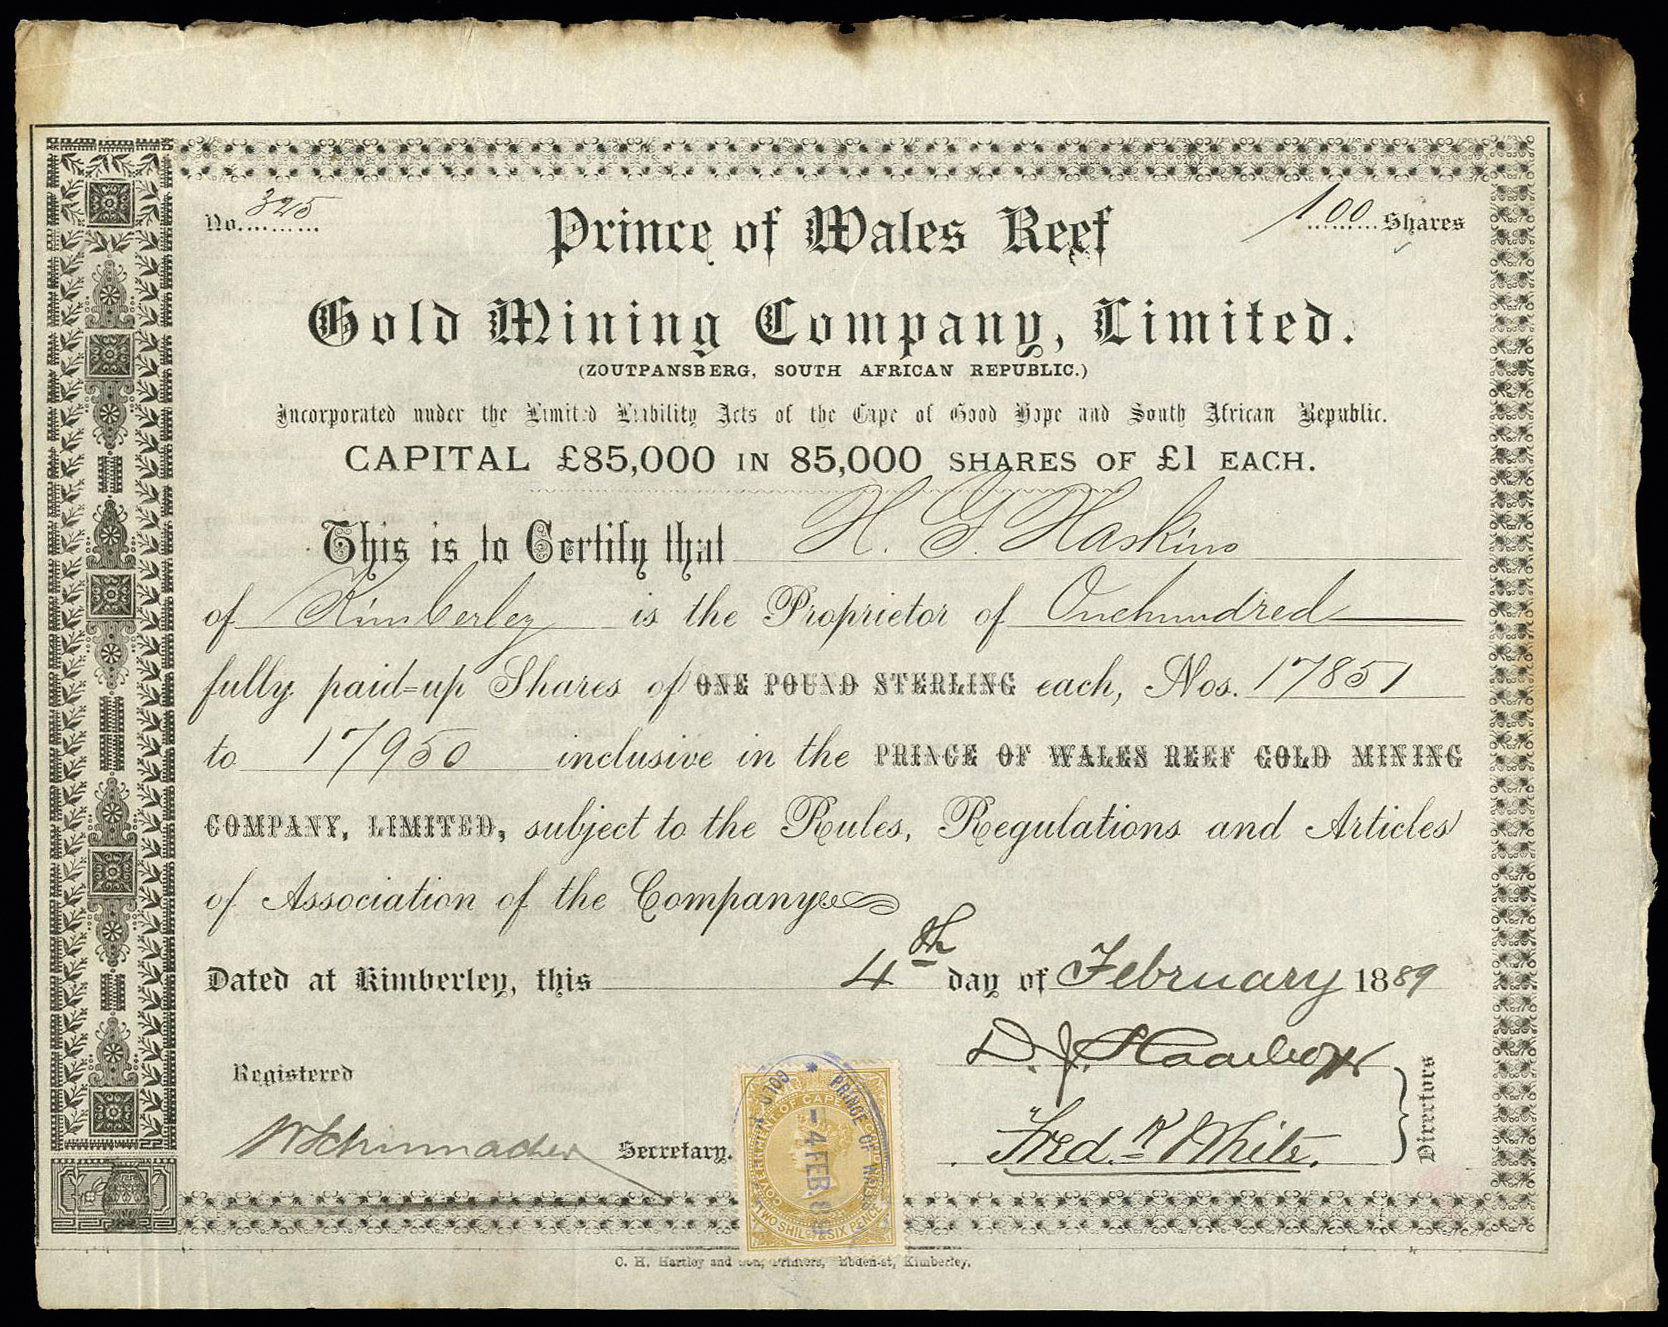 No. 325
100 Shares
Prince of Wales Reef
Gold Mining Company, Limited.
(ZOUTPANSBERG, SOUTH AFRICAN REPUBLIC.)
Incorporated under the Limited Liability Acts of the Cape of Good Hope and South African Republic.
CAPITAL £85,000 IN 85,000 SHARES OF £1 EACH.
This is to Certify that H. G. Haskins
of Kimberley is the Proprietor of One hundred
fully paid-up Shares of ONE POUND STERLING each, Nos. 17851
to 17950 inclusive in the PRINCE OF WALES REEF GOLD MINING
COMPANY, LIMITED, subject to the Rules, Regulations and Articles
of Association of the Company
Dated at Kimberley, this 4th day of February 1889
D. J.
Registered
Fred. R White.
Directors
W Schumacher Secretary.
GOVERNMENT OF CAPE
TWO SHILGS & SIX PENCE
PRINCE OF
GOLD
- 4 FEB 89
C. H. Hartley and Son, Printers, Ebden-st, Kimberley.